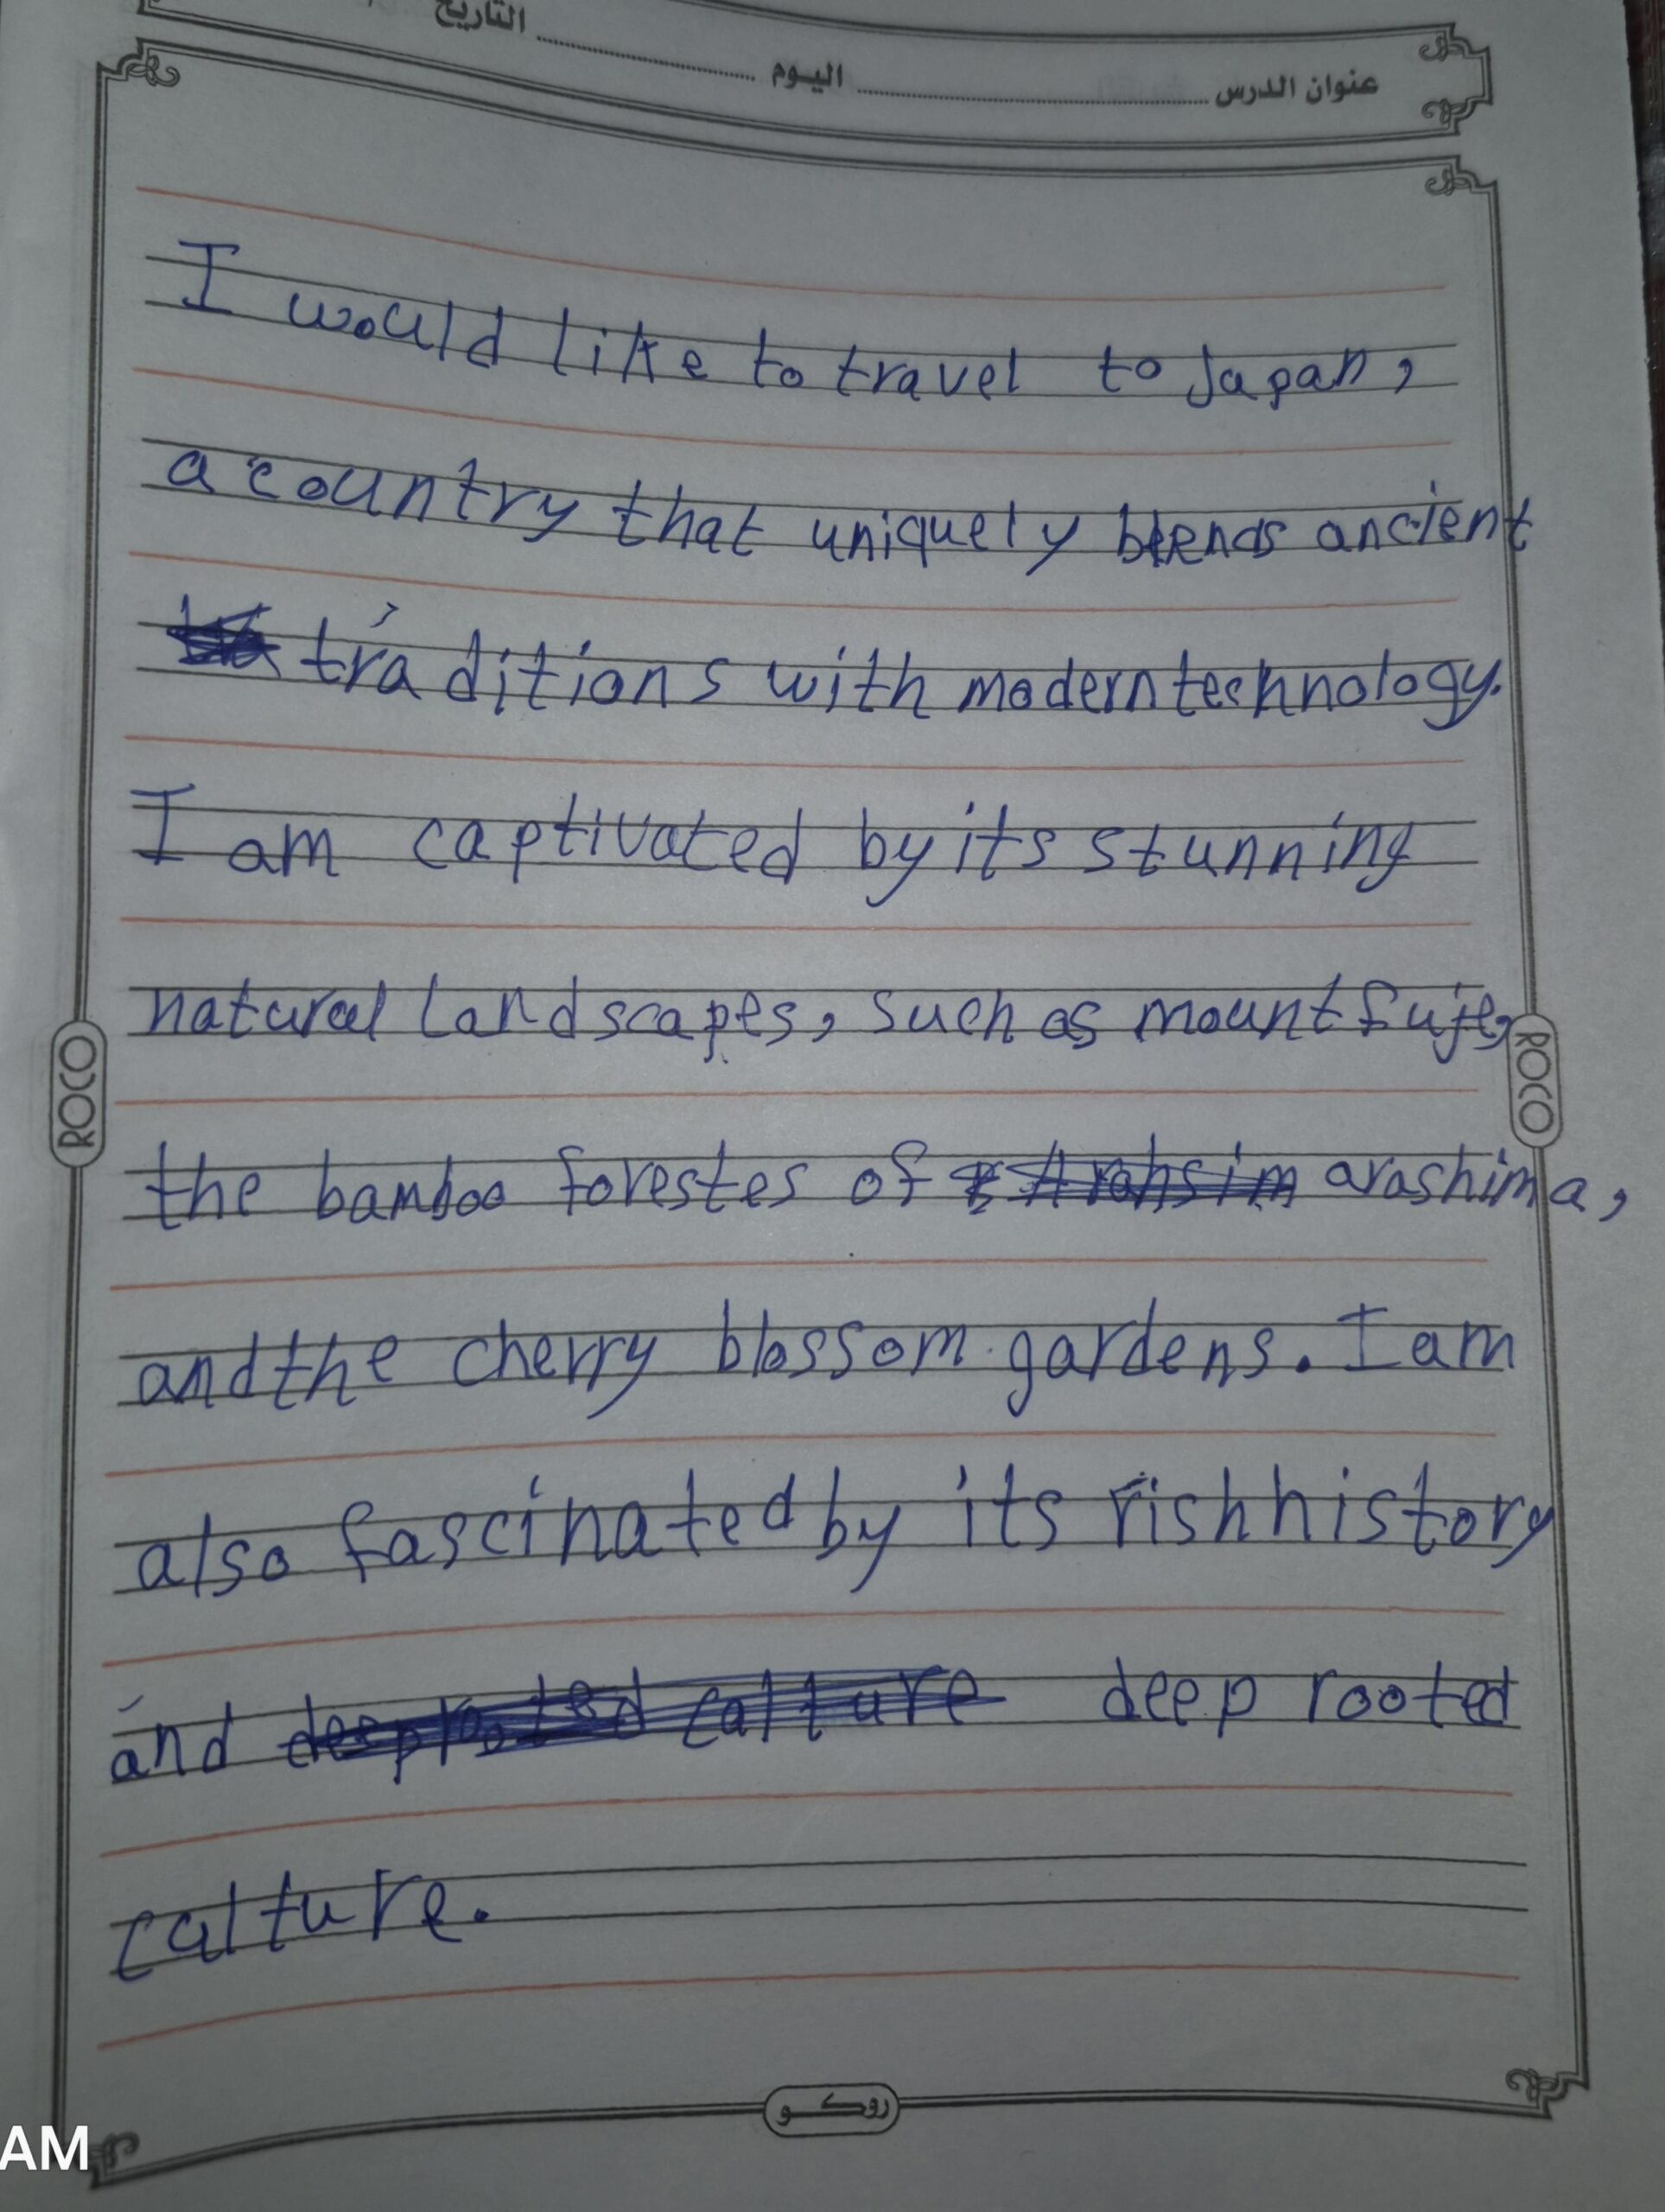 التاريخ
اليوم
عنوان الدرس
I would like to travel to Japan,
a country that uniquely blends ancient
traditions with modern technology.
I am captivated by its stunning
natural landscapes, such as mount fuje,
the bamboo forestes of arashima,
and the cherry blossom gardens. I am
also fascinated by its rish history
and deep rooted
calture.
ROCO
ROCO
روكو
AM